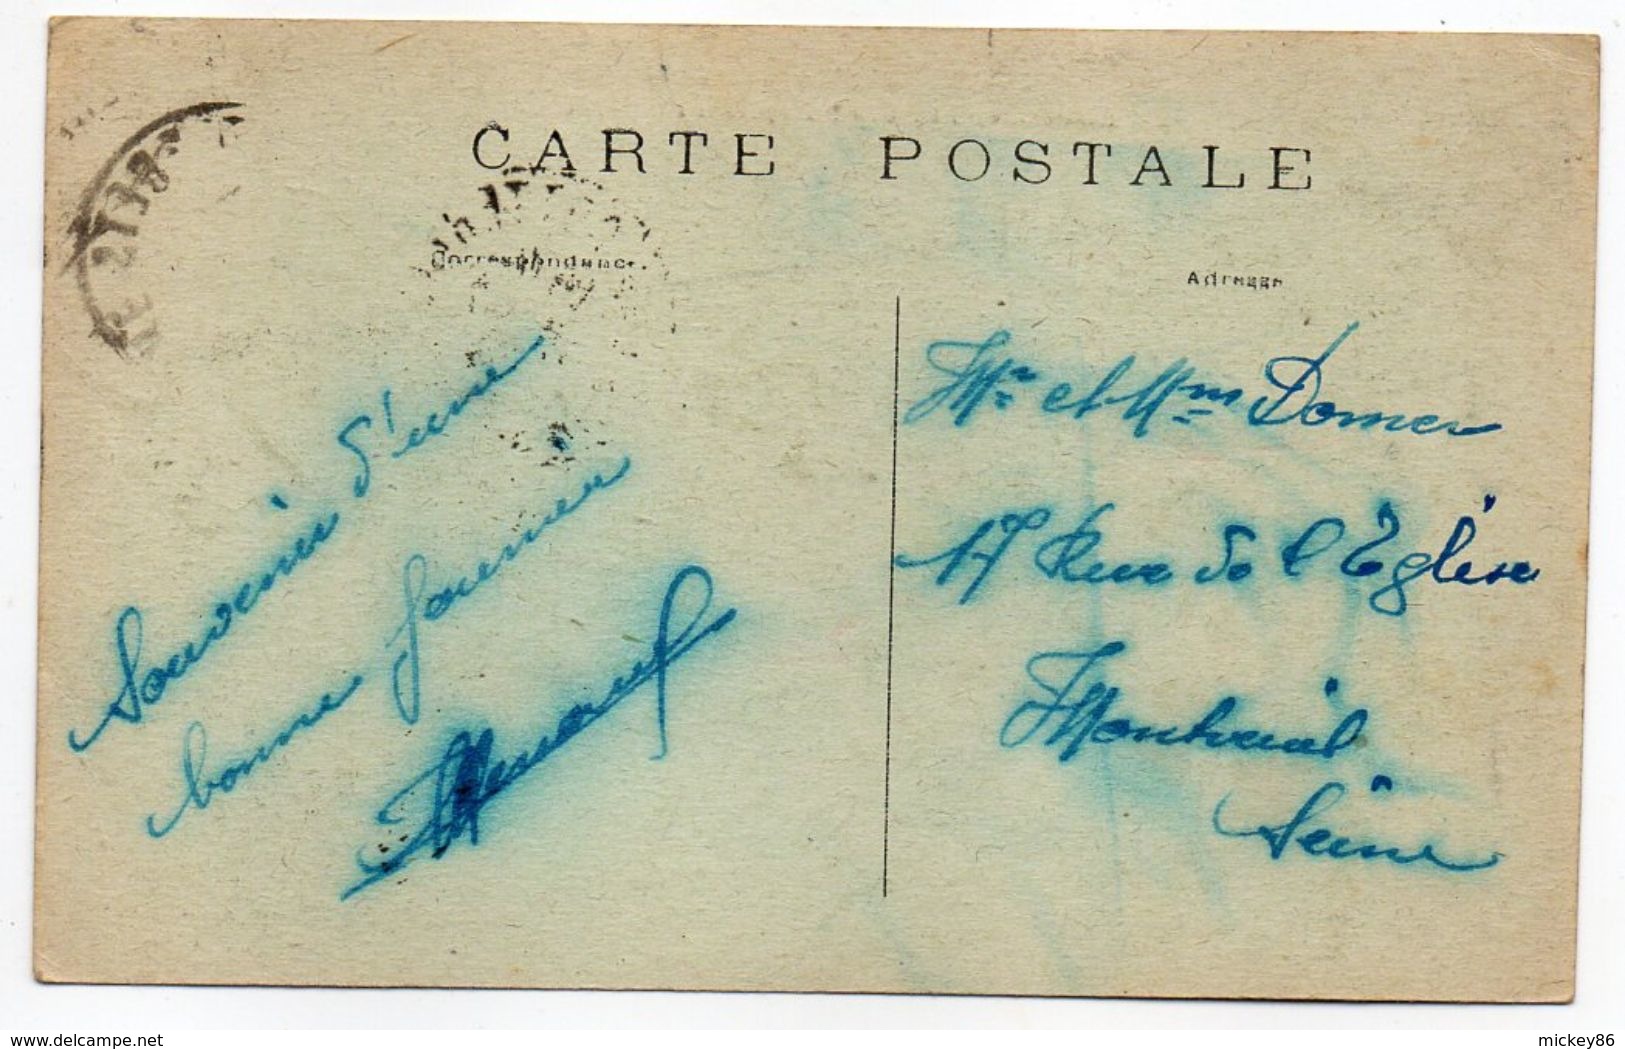 CARTE POSTALE
Correspondance
Adresse
Souvenir d'une
bonne journée
Mr et Mme Domer
17 Rue de l'Eglise
Montreuil
Seine
www.delcampe.net
mickey86